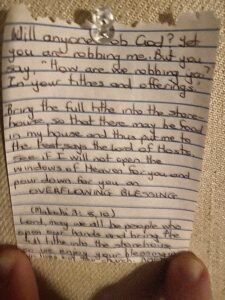 Will anyone rob God? Yet
you are robbing me. But you
say, "How are we robbing you?"
In your tithes and offerings.
Bring the full tithe into the store-
house, so that there may be food
in my house and thus put me to
the test, says the Lord of Hosts;
see if I will not open the
windows of Heaven for you and
pour down for you an
OVERFLOWING BLESSING
(Malachi 3: 8, 10)
Lord may we all be people who
open our hands and bring the
full tithe into the storehouse
we enjoy your blessing